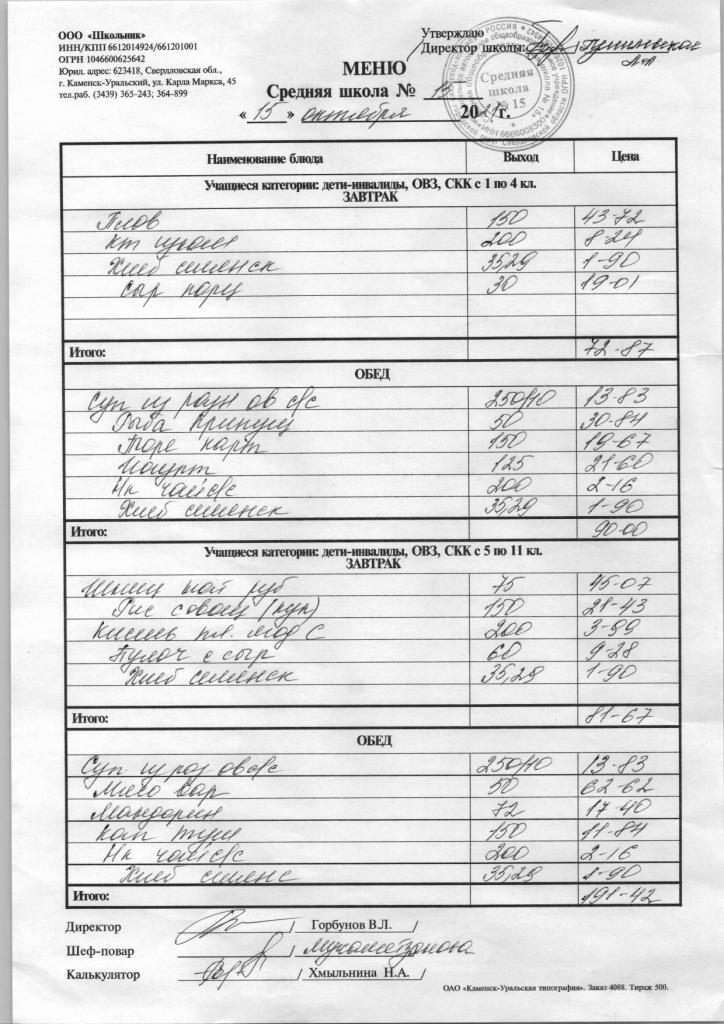 ООО «Школьник»
ИНН/КПП 6612014924/661201001
ОГРН 1046600625642
Юрид. адрес: 623418, Свердловская обл.,
г. Каменск-Уральский, ул. Карла Маркса, 45
тел.раб. (3439) 365-243; 364-899
Утверждаю
Директор школы:
МЕНЮ
Средняя школа № 15
« 15 » октября 2021г.
Средняя
школа
№ 15
Наименование блюда Выход Цена
Учащиеся категории: дети-инвалиды, ОВЗ, СКК с 1 по 4 кл.
ЗАВТРАК
Плов 150 43-72
Кт изюм 200 8-24
Хлеб семенск 35,29 1-90
Сыр порц 30 19-01
Итого: 72-87
ОБЕД
Суп из разн ов с/с 250/10 13-83
Рыба припущ 50 30-84
Пюре карт 150 19-67
Йогурт 125 21-60
Нк чай с/с 200 2-16
Хлеб семенск 35,29 1-90
Итого: 90-00
Учащиеся категории: дети-инвалиды, ОВЗ, СКК с 5 по 11 кл.
ЗАВТРАК
руб 75 45-07
Рис с овощ (пуп) 150 21-43
Кисель пл. яод С 200 3-99
Булоч с сыр 60 9-28
Хлеб семенск 35,29 1-90
Итого: 81-67
ОБЕД
Суп из роз ов с/с 250/10 13-83
Мясо вар 50 62-62
Мандарин 72 17-40
Кап туш 150 11-84
Нк чай с/с 200 2-16
Хлеб семенс 35,29 1-90
Итого: 191-42
Директор / Горбунов В.Л. /
Шеф-повар / Мухаметзянова
Калькулятор / Хмыльнина Н.А. /
ОАО «Каменск-Уральская типография». Заказ 4088. Тираж 500.